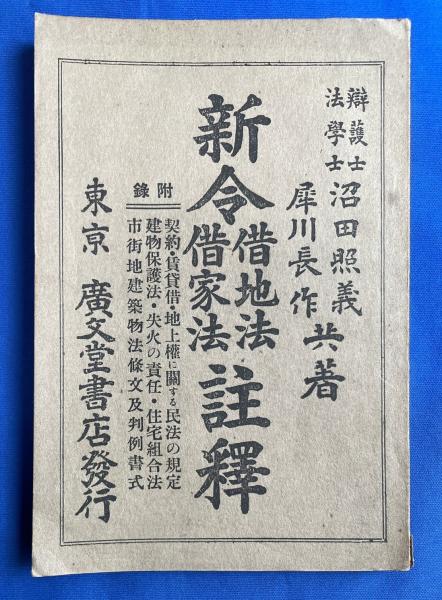 辯護士
法學士
沼田照義
犀川長作
共著
新令
借地法
借家法
註釋
附錄
契約・賃貸借・地上權に關する民法の規定
建物保護法・失火の責任・住宅組合法
市街地建築物法條文及判例書式
東京 廣文堂書店發行